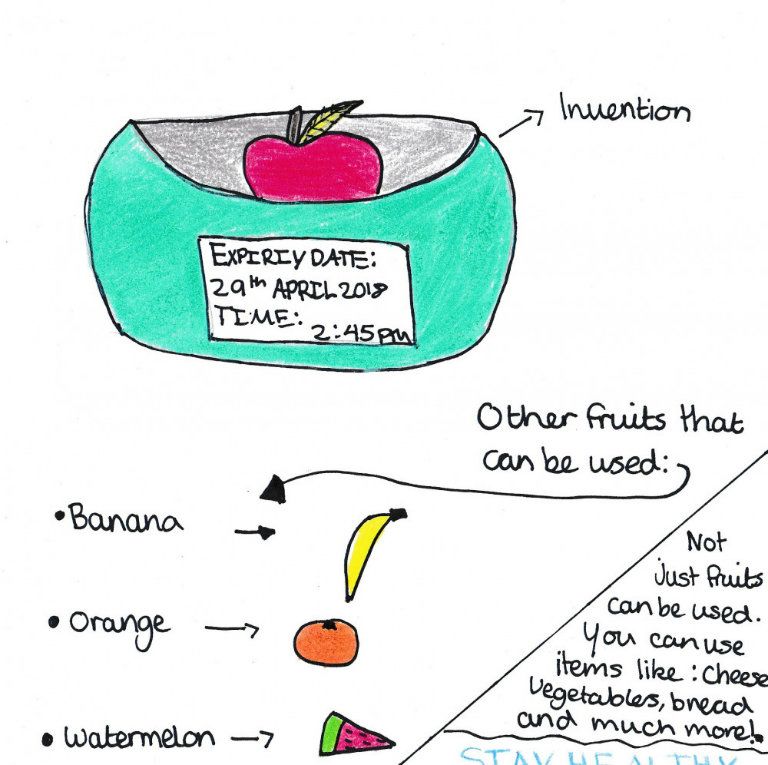 Invention
EXPIRIY DATE:
29th APRIL 2018
TIME:
2:45pm
Other fruits that
can be used:
• Banana
• Orange
• Watermelon
Not
just fruits
can be used.
You can use
items like : Cheese
Vegetables, bread
and much more!
STAY HEALTHY